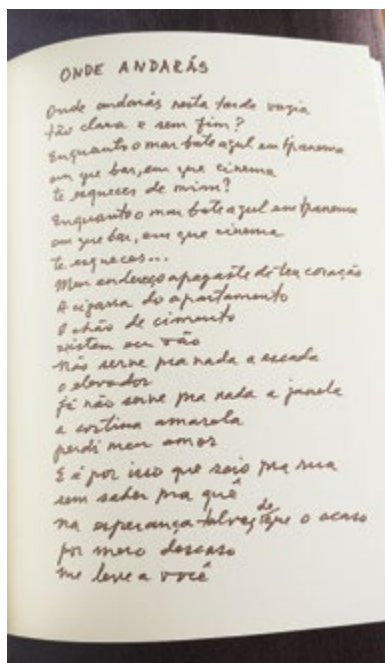 ONDE ANDARÁS
Onde andarás nesta tarde vazia
tão clara e sem fim?
Enquanto o mar bate azul em Ipanema
em que bar, em que cinema
te esqueces de mim?
Enquanto o mar bate azul em Ipanema
em que bar, em que cinema
te esqueces...
Meu endereço apagaste de teu coração
A cigarra do apartamento
O chão de cimento
existem em vão
Não serve pra nada a escada
o elevador
Já não serve pra nada a janela
a cortina amarela
perdi meu amor
E é por isso que saio pra rua
sem saber pra quê
na esperança talvez de que o acaso
por mero descaso
me leve a você